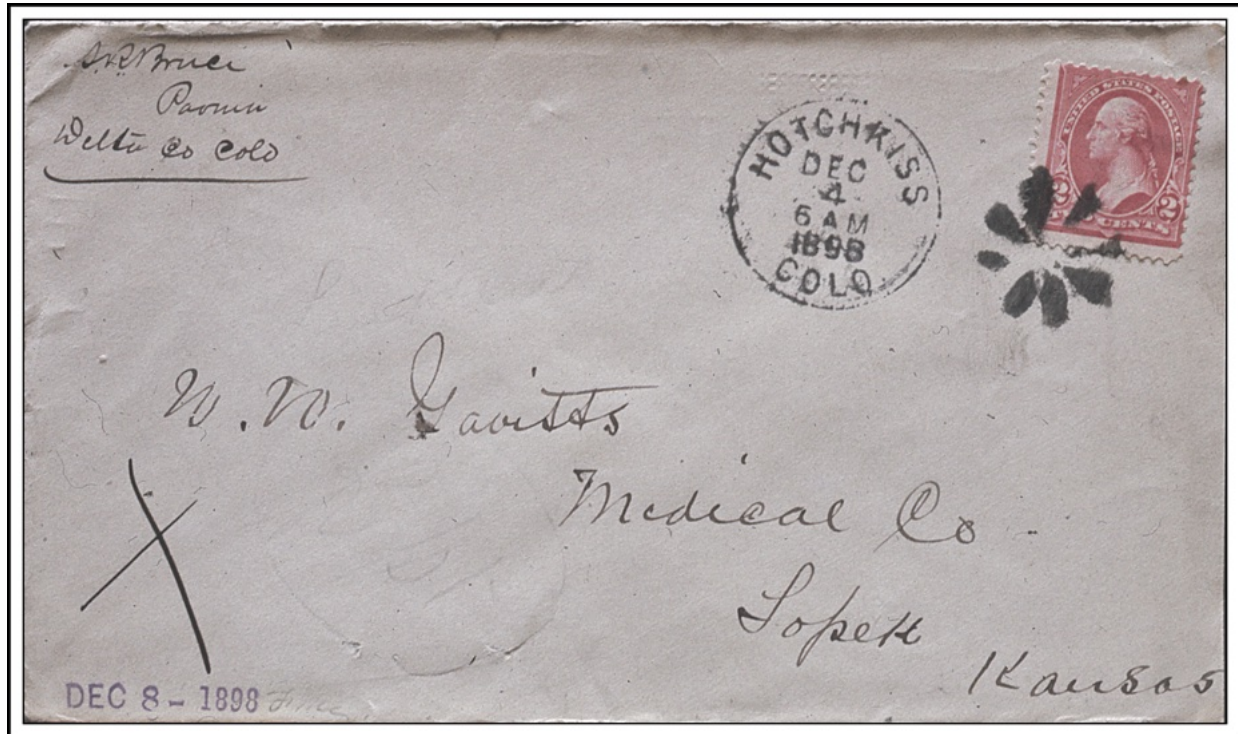 Bruce
Paonia
Delta Co Colo
HOTCHKISS
DEC
4
6 AM
1898
COLO
UNITED STATES POSTAGE
2 2
CENTS
W. W. Gavitts
Medical Co
Topek
Kansas
DEC 8 - 1898